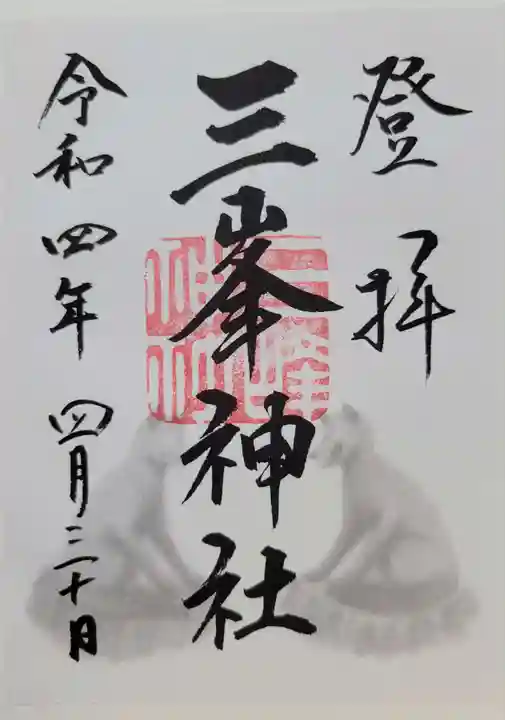 登拝
三峯神社
三峰神社
令和四年四月三十日